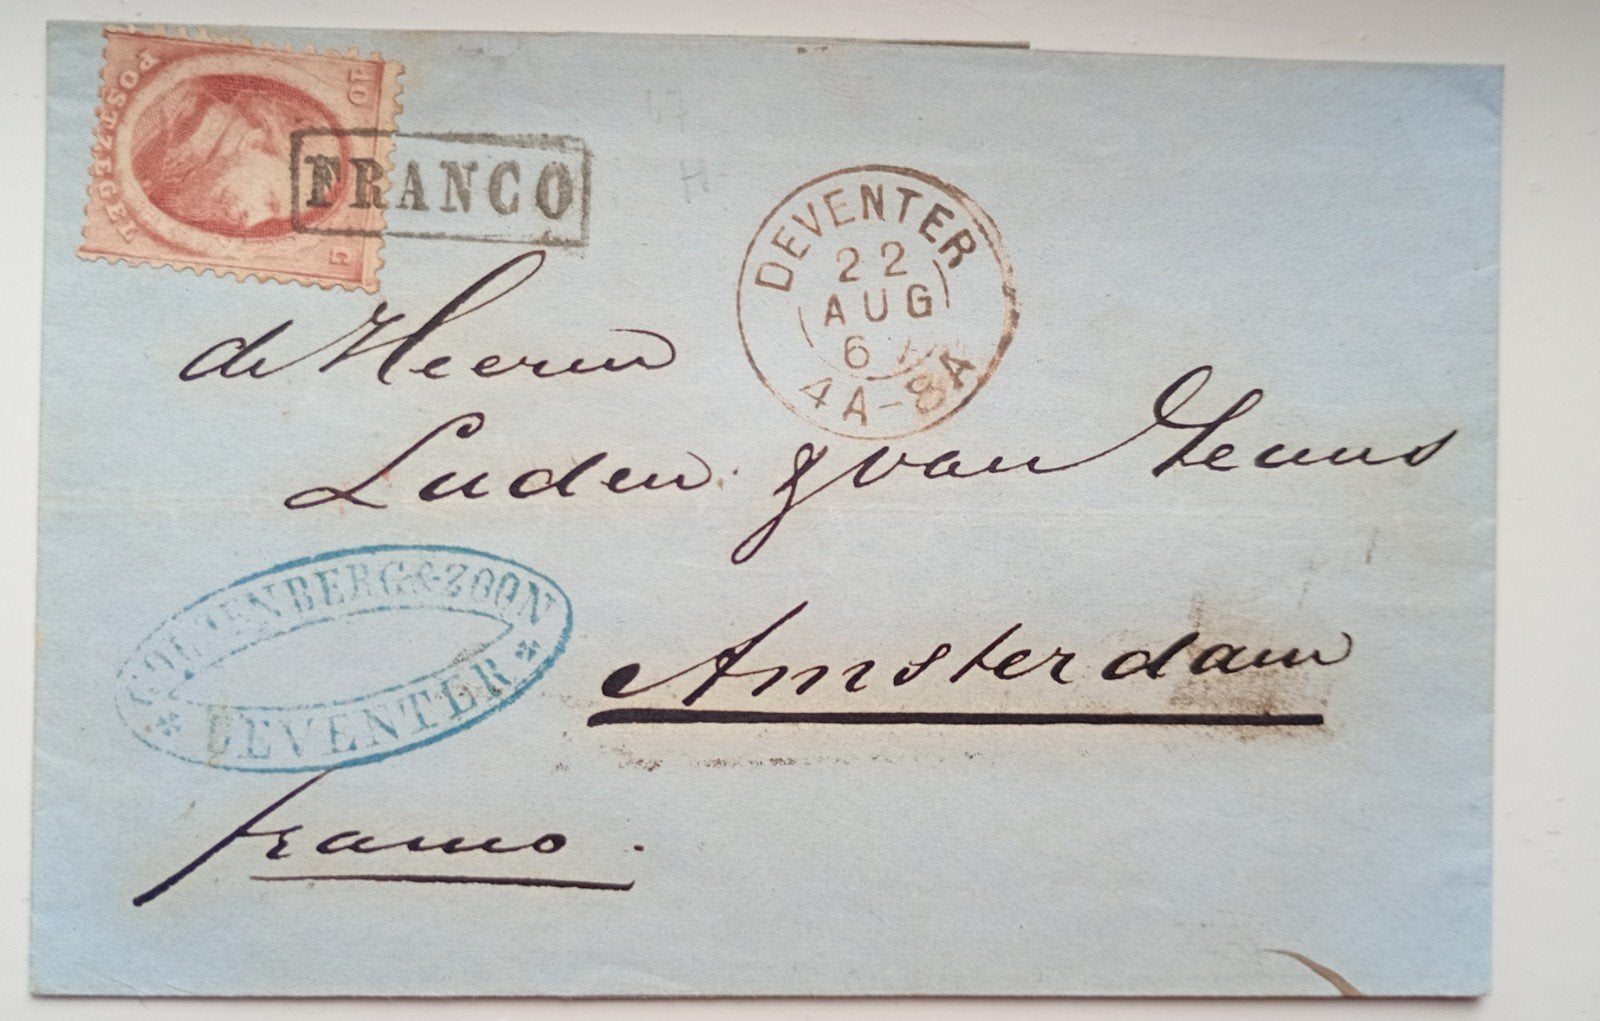 POSTZEGEL
10
C
FRANCO
DEVENTER
22
AUG
6
4A-8A
de Heeren
Luden & van Geuns
Amsterdam
& ZOON
DEVENTER
franco.